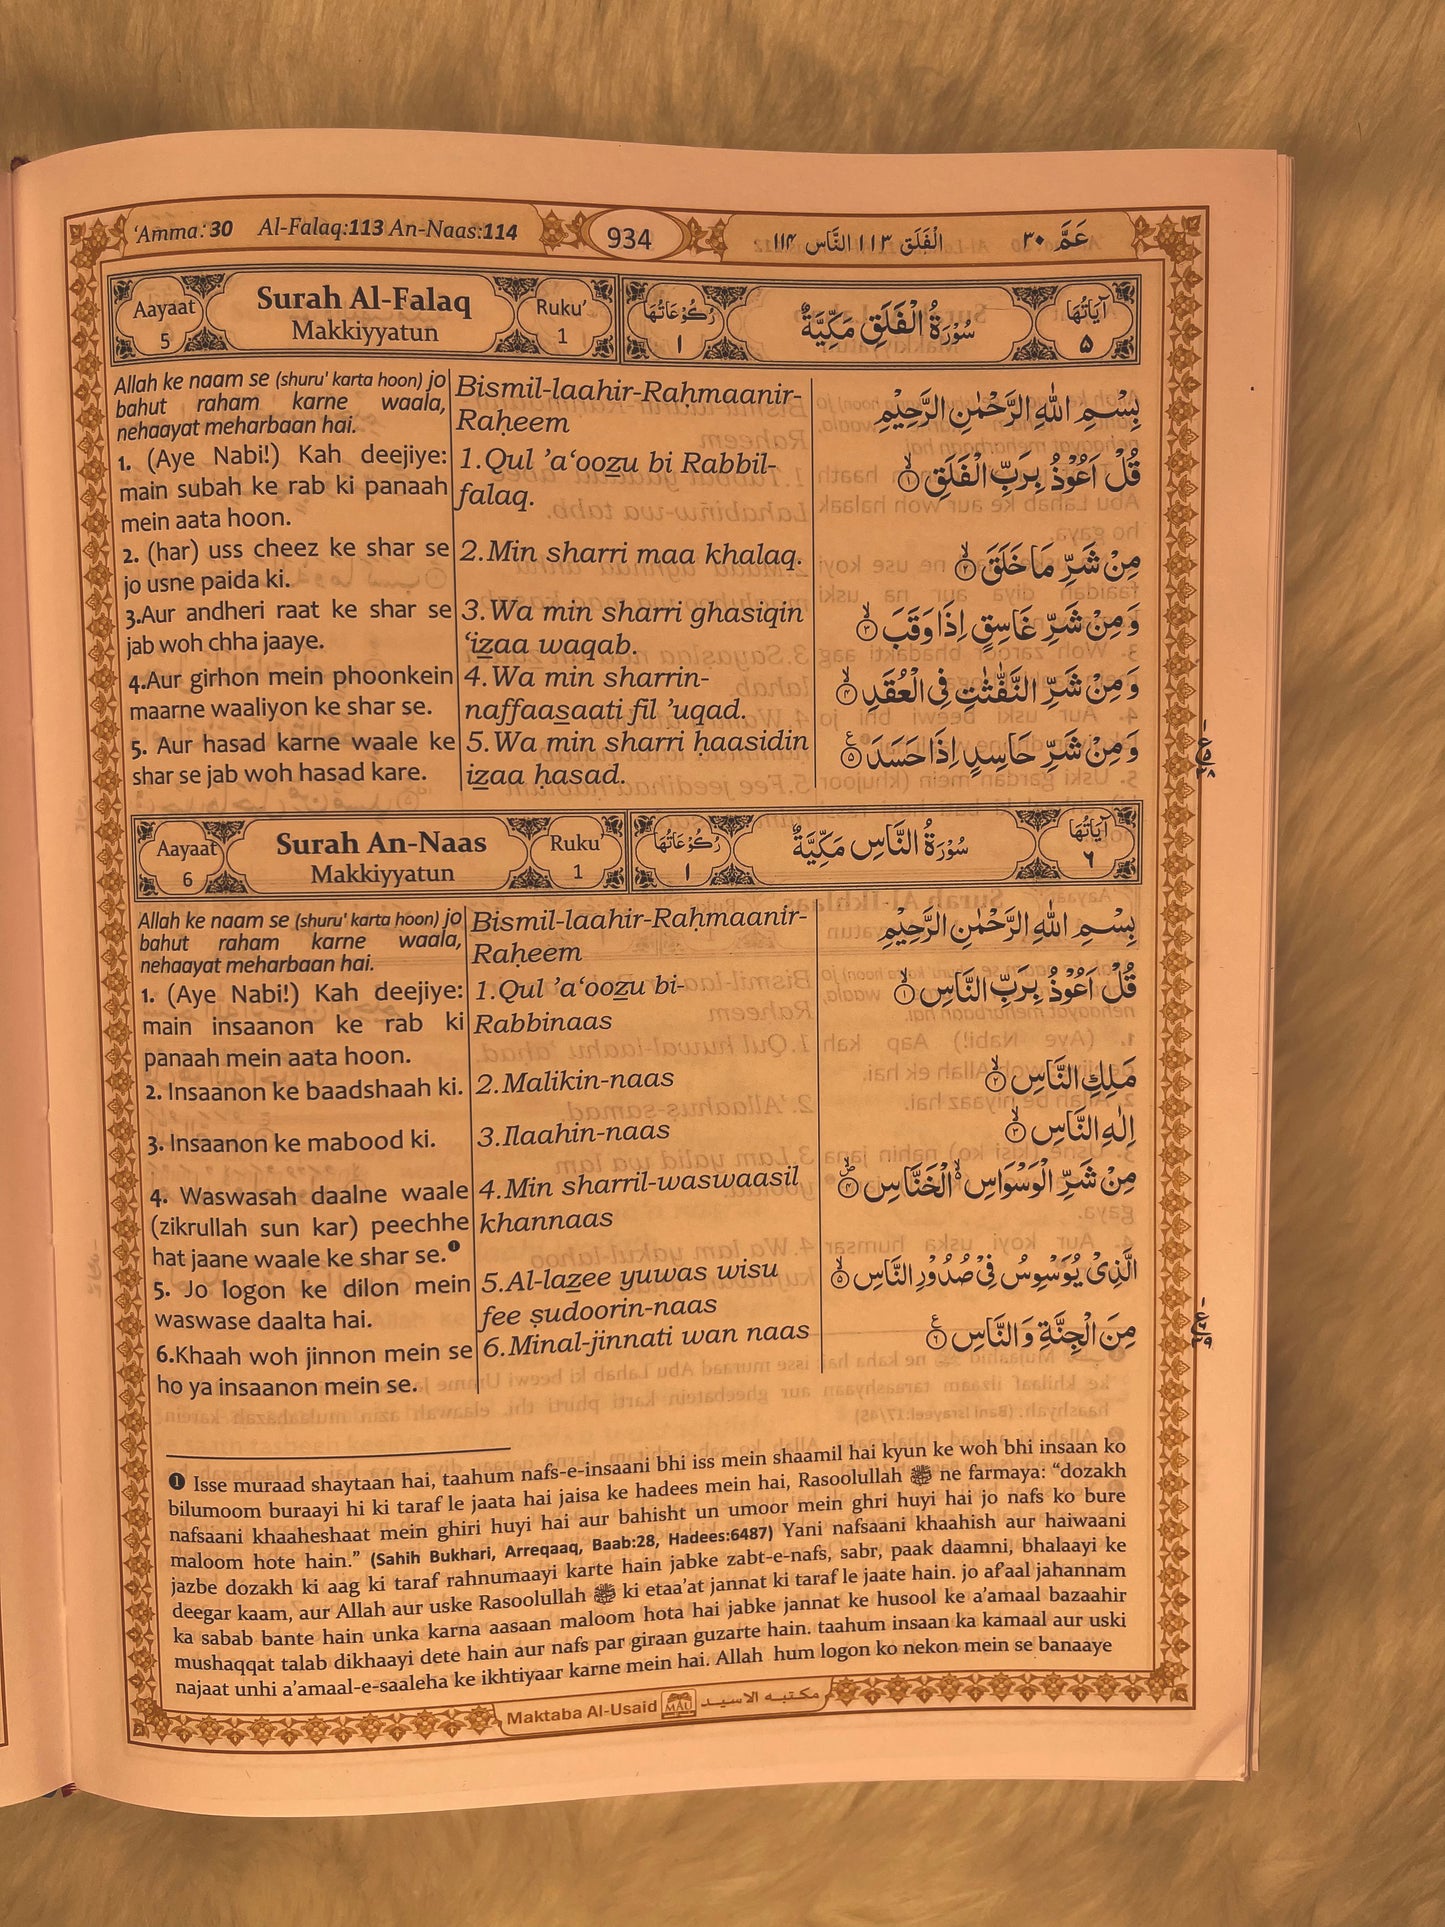 'Amma: 30 Al-Falaq:113 An-Naas:114 934 الْفَلَق ١١٣ النَّاس ١١٤ عَمَّ ٣٠
Aayaat 5 Surah Al-Falaq Makkiyyatun Ruku' 1
رُكُوْعَاتُهَا ١ سُوْرَةُ الْفَلَقِ مَكِّيَّةٌ اٰيَاتُهَا ٥
Allah ke naam se (shuru' karta hoon) jo
bahut raham karne waala,
nehaayat meharbaan hai.
1. (Aye Nabi!) Kah deejiye:
main subah ke rab ki panaah
mein aata hoon.
2. (har) uss cheez ke shar se
jo usne paida ki.
3.Aur andheri raat ke shar se
jab woh chha jaaye.
4.Aur girhon mein phoonkein
maarne waaliyon ke shar se.
5. Aur hasad karne waale ke
shar se jab woh hasad kare.
Bismil-laahir-Raḥmaanir-
Raḥeem
1.Qul ’a‘oozu bi Rabbil-
falaq.
2.Min sharri maa khalaq.
3.Wa min sharri ghasiqin
‘izaa waqab.
4.Wa min sharrin-
naffaasaati fil ’uqad.
5.Wa min sharri ḥaasidin
izaa ḥasad.
بِسْمِ اللهِ الرَّحْمٰنِ الرَّحِيْمِ
قُلْ اَعُوْذُ بِرَبِّ الْفَلَقِ ۙ١
مِنْ شَرِّ مَا خَلَقَ ۙ٢
وَمِنْ شَرِّ غَاسِقٍ اِذَا وَقَبَ ۙ٣
وَمِنْ شَرِّ النَّفّٰثٰتِ فِى الْعُقَدِ ۙ٤
وَمِنْ شَرِّ حَاسِدٍ اِذَا حَسَدَ ٥
Aayaat 6 Surah An-Naas Makkiyyatun Ruku' 1
رُكُوْعَاتُهَا ١ سُوْرَةُ النَّاسِ مَكِّيَّةٌ اٰيَاتُهَا ٦
Allah ke naam se (shuru' karta hoon) jo
bahut raham karne waala,
nehaayat meharbaan hai.
1. (Aye Nabi!) Kah deejiye:
main insaanon ke rab ki
panaah mein aata hoon.
2. Insaanon ke baadshaah ki.
3. Insaanon ke mabood ki.
4. Waswasah daalne waale
(zikrullah sun kar) peechhe
hat jaane waale ke shar se.❶
5. Jo logon ke dilon mein
waswase daalta hai.
6.Khaah woh jinnon mein se
ho ya insaanon mein se.
Bismil-laahir-Raḥmaanir-
Raḥeem
1.Qul ’a‘oozu bi-
Rabbinaas
2.Malikin-naas
3.Ilaahin-naas
4.Min sharril-waswaasil
khannaas
5.Al-lazee yuwas wisu
fee ṣudoorin-naas
6.Minal-jinnati wan naas
بِسْمِ اللهِ الرَّحْمٰنِ الرَّحِيْمِ
قُلْ اَعُوْذُ بِرَبِّ النَّاسِ ۙ١
مَلِكِ النَّاسِ ۙ٢
اِلٰهِ النَّاسِ ۙ٣
مِنْ شَرِّ الْوَسْوَاسِ ۙ الْخَنَّاسِ ۙ٤
الَّذِىْ يُوَسْوِسُ فِىْ صُدُوْرِ النَّاسِ ۙ٥
مِنَ الْجِنَّةِ وَالنَّاسِ ٦
❶ Isse muraad shaytaan hai, taahum nafs-e-insaani bhi iss mein shaamil hai kyun ke woh bhi insaan ko
bilumoom buraayi hi ki taraf le jaata hai jaisa ke hadees mein hai, Rasoolullah ﷺ ne farmaya: “dozakh
nafsaani khaaheshaat mein ghiri huyi hai aur bahisht un umoor mein ghri huyi hai jo nafs ko bure
maloom hote hain.” (Sahih Bukhari, Arreqaaq, Baab:28, Hadees:6487) Yani nafsaani khaahish aur haiwaani
jazbe dozakh ki aag ki taraf rahnumaayi karte hain jabke zabt-e-nafs, sabr, paak daamni, bhalaayi ke
deegar kaam, aur Allah aur uske Rasoolullah ﷺ ki etaa’at jannat ki taraf le jaate hain. jo af’aal jahannam
ka sabab bante hain unka karna aasaan maloom hota hai jabke jannat ke husool ke a’amaal bazaahir
mushaqqat talab dikhaayi dete hain aur nafs par giraan guzarte hain. taahum insaan ka kamaal aur uski
najaat unhi a’amaal-e-saaleha ke ikhtiyaar karne mein hai. Allah hum logon ko nekon mein se banaaye
Maktaba Al-Usaid MAU مكتبه الاسيد